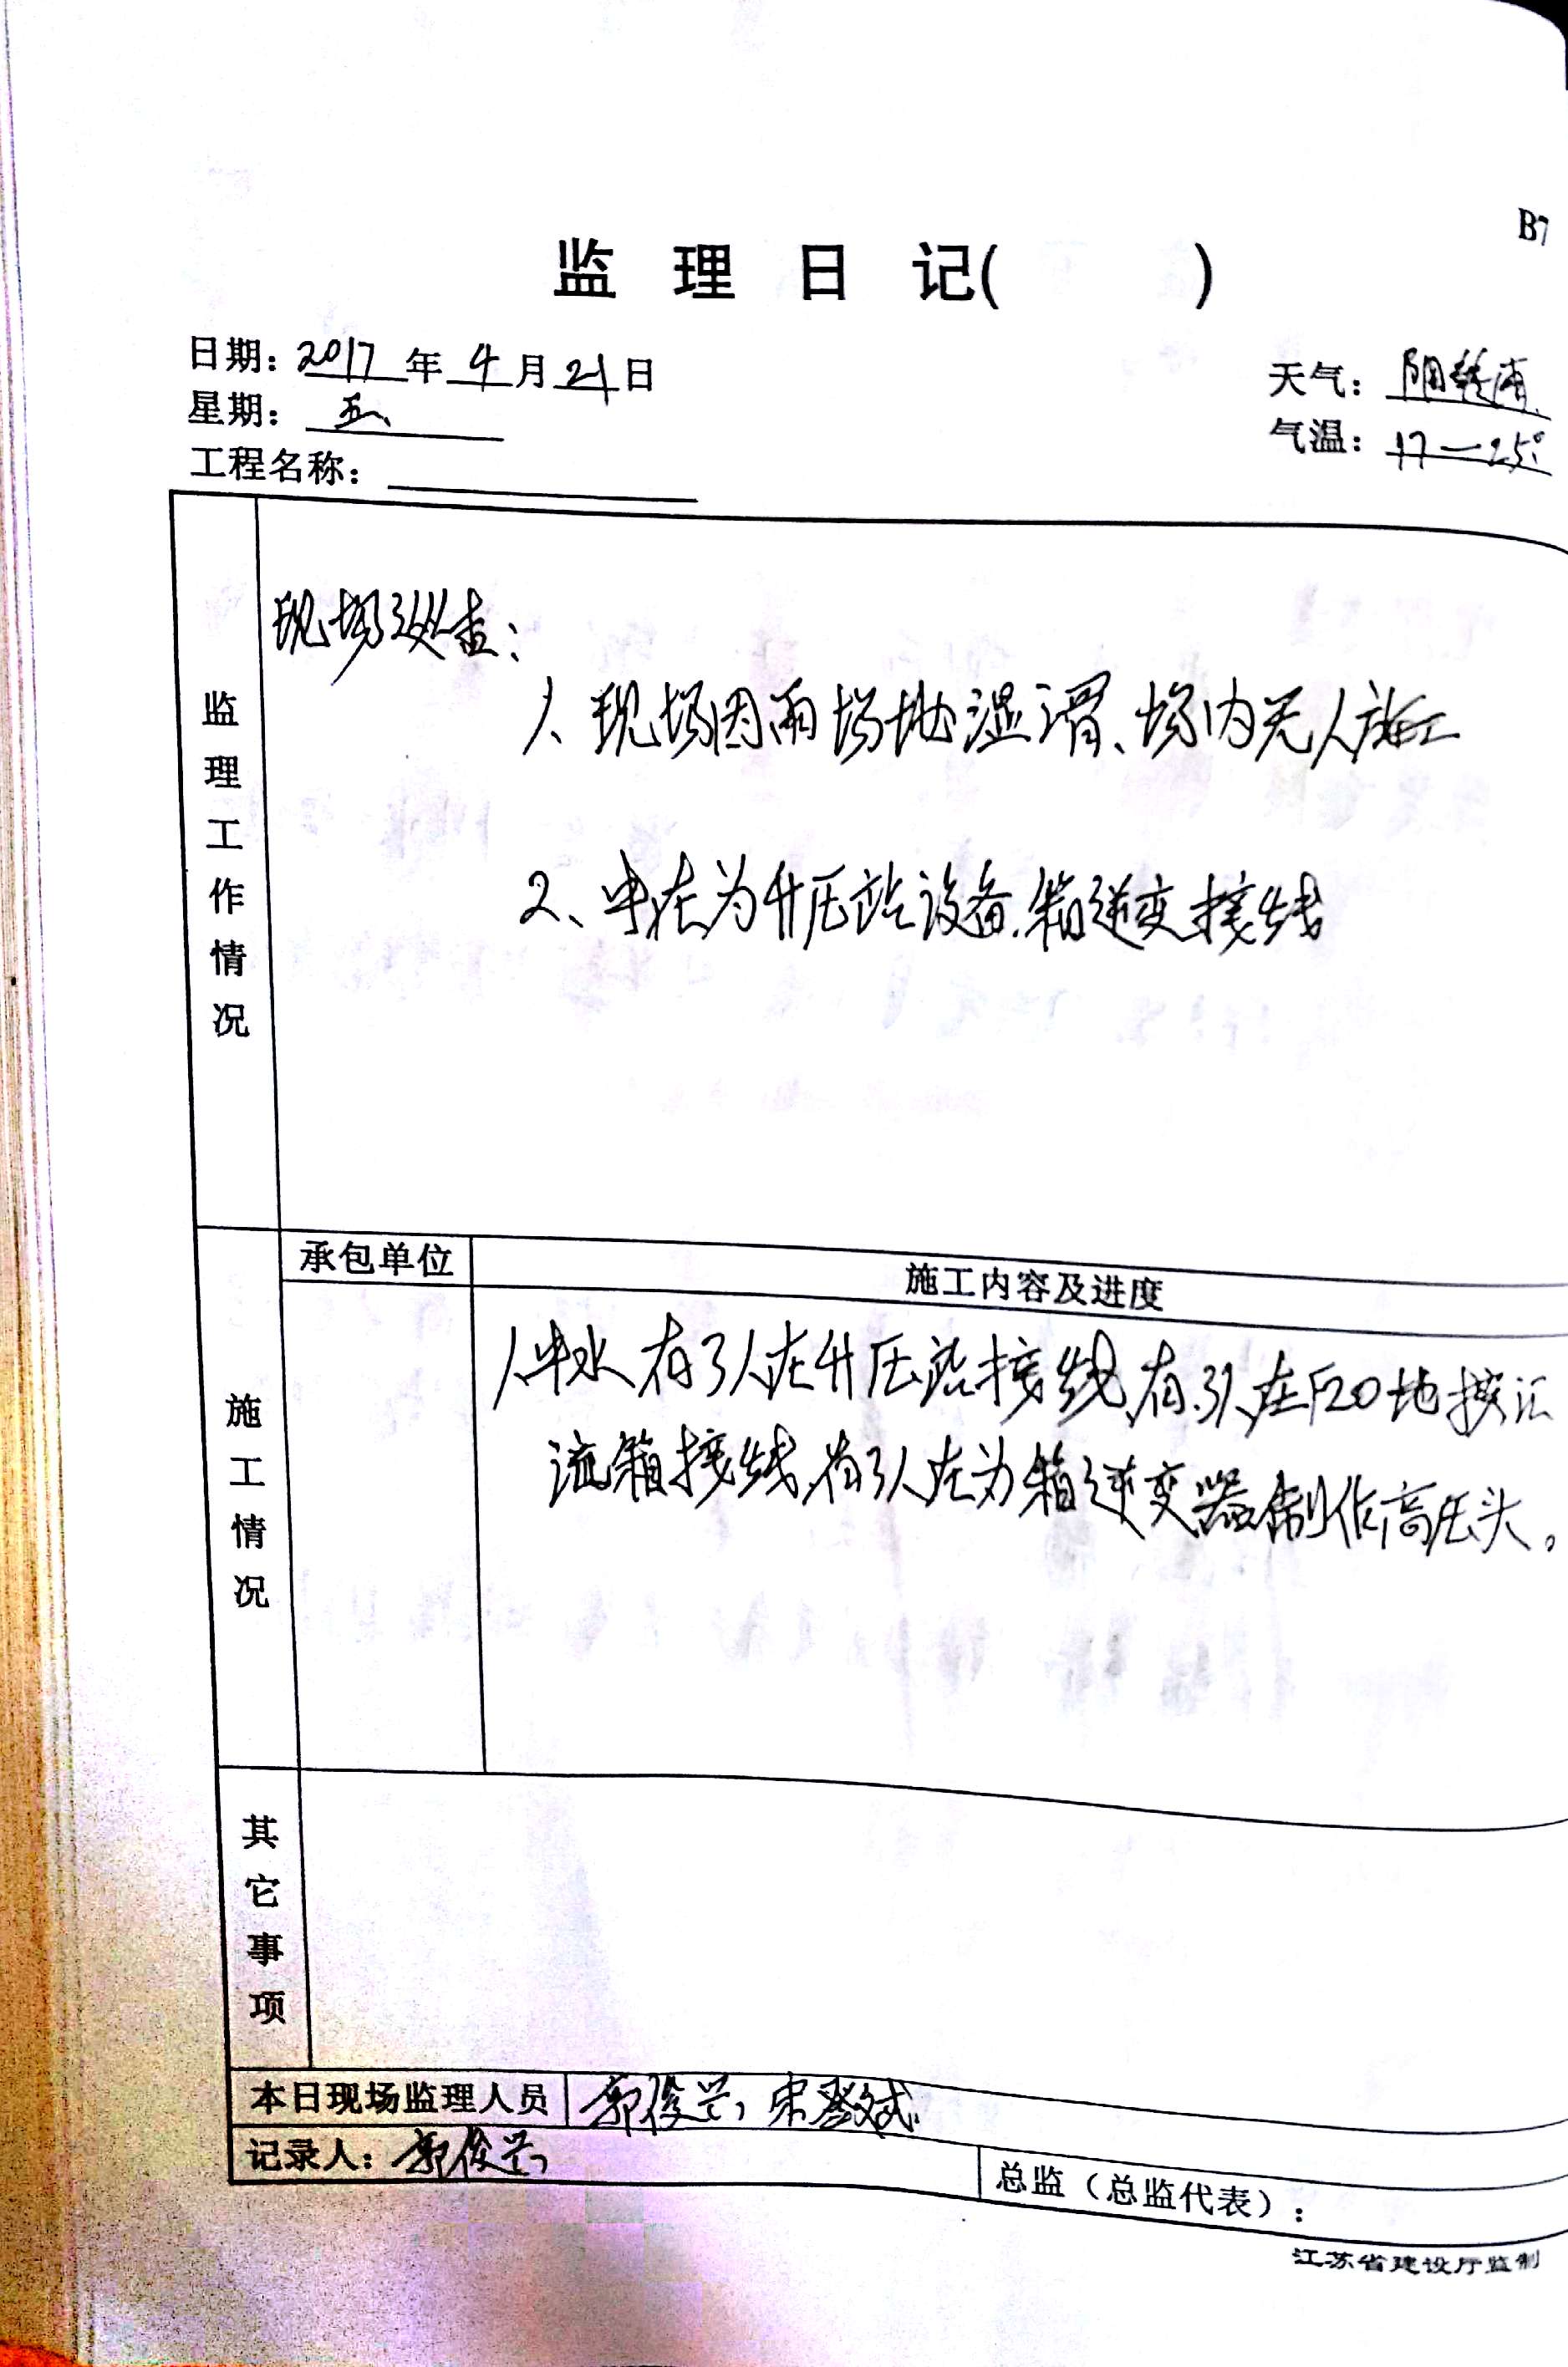 B7
监 理 日 记( )
日期: 2017 年 4 月 21 日
天气: 阴转
星期: 五
气温: 17—25°
工程名称:
监理工作情况
现场巡查:
1、现场因雨场地湿滑、场内无人施工
2、在为升压站设备、箱逆变接线
承包单位
施工内容及进度
施工情况
1、水 有3人在升压站接线,有3人在 地 汇
流箱接线,有3人在为箱逆变器制作高压头。
其它事项
本日现场监理人员 郭俊兴、宋
记录人: 郭俊兴
总监(总监代表):
江苏省建设厅监制